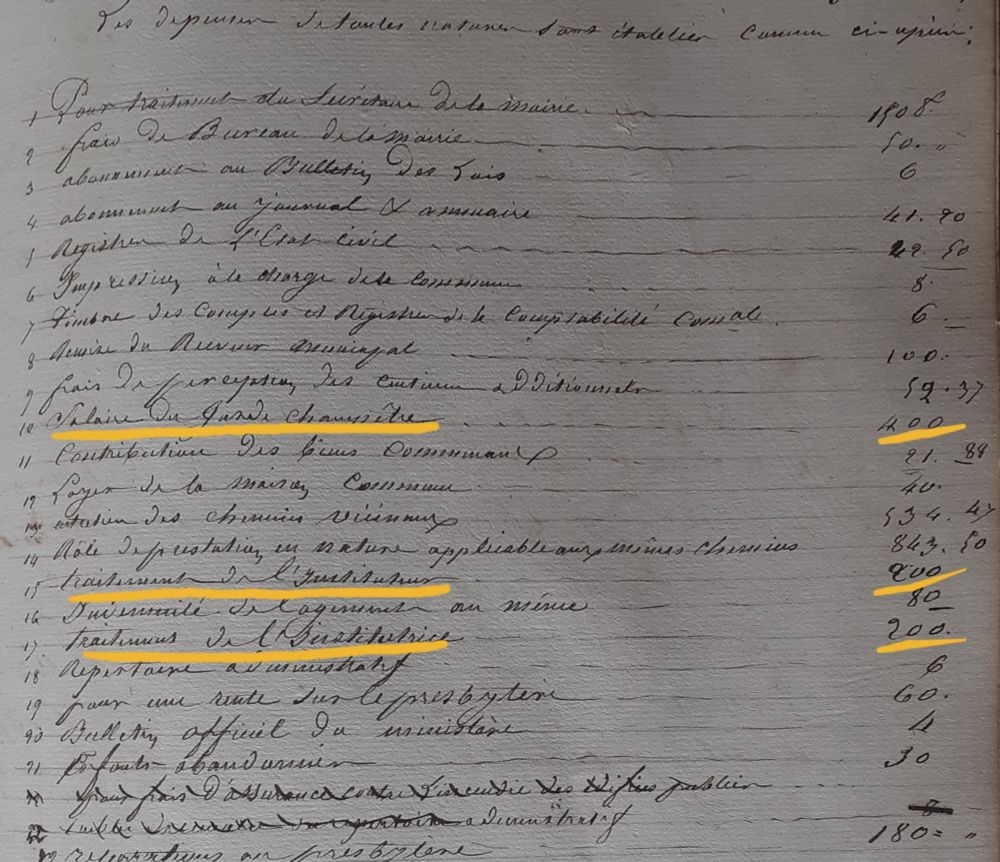 Les depenses de toutes natures sont établies comme ci-après:
1 Pour traitement du Secrétaire de la mairie 150 f.
2 frais de Bureau de la mairie 50. "
3 abonnement au Bulletin Des Lois 6
4 abonnement au journal & annuaire 41. 20
5 Registres de l'Etat Civil 42. 50
6 Impressions à la charge de la commune 8.
7 Timbre des Comptes et Registres de la Comptabilité Comale. 6.
8 Remise du Receveur municipal 100.
9 frais de perception des centimes additionnels 52. 37
10 Salaire du Garde champêtre 400
11 Contribution des biens Communaux 21. 88
12 Loyer de la maison Commune 40.
13 entretien des chemins vicinaux 534. 47
14 Rôle de prestation en nature applicable aux mêmes chemins 843. 50
15 traitement de l'Instituteur 200
16 Indemnité de logement au même 80
17 traitement de l'Institutrice 200.
18 Repertoire administratif 6
19 pour une rente sur le presbytère 60.
20 Bulletin officiel du ministère 4
21 Enfants abandonnés 30
pour frais d'assurance contre l'incendie des édifices publics
22 administratif 8
reparations au presbytère 180 = "